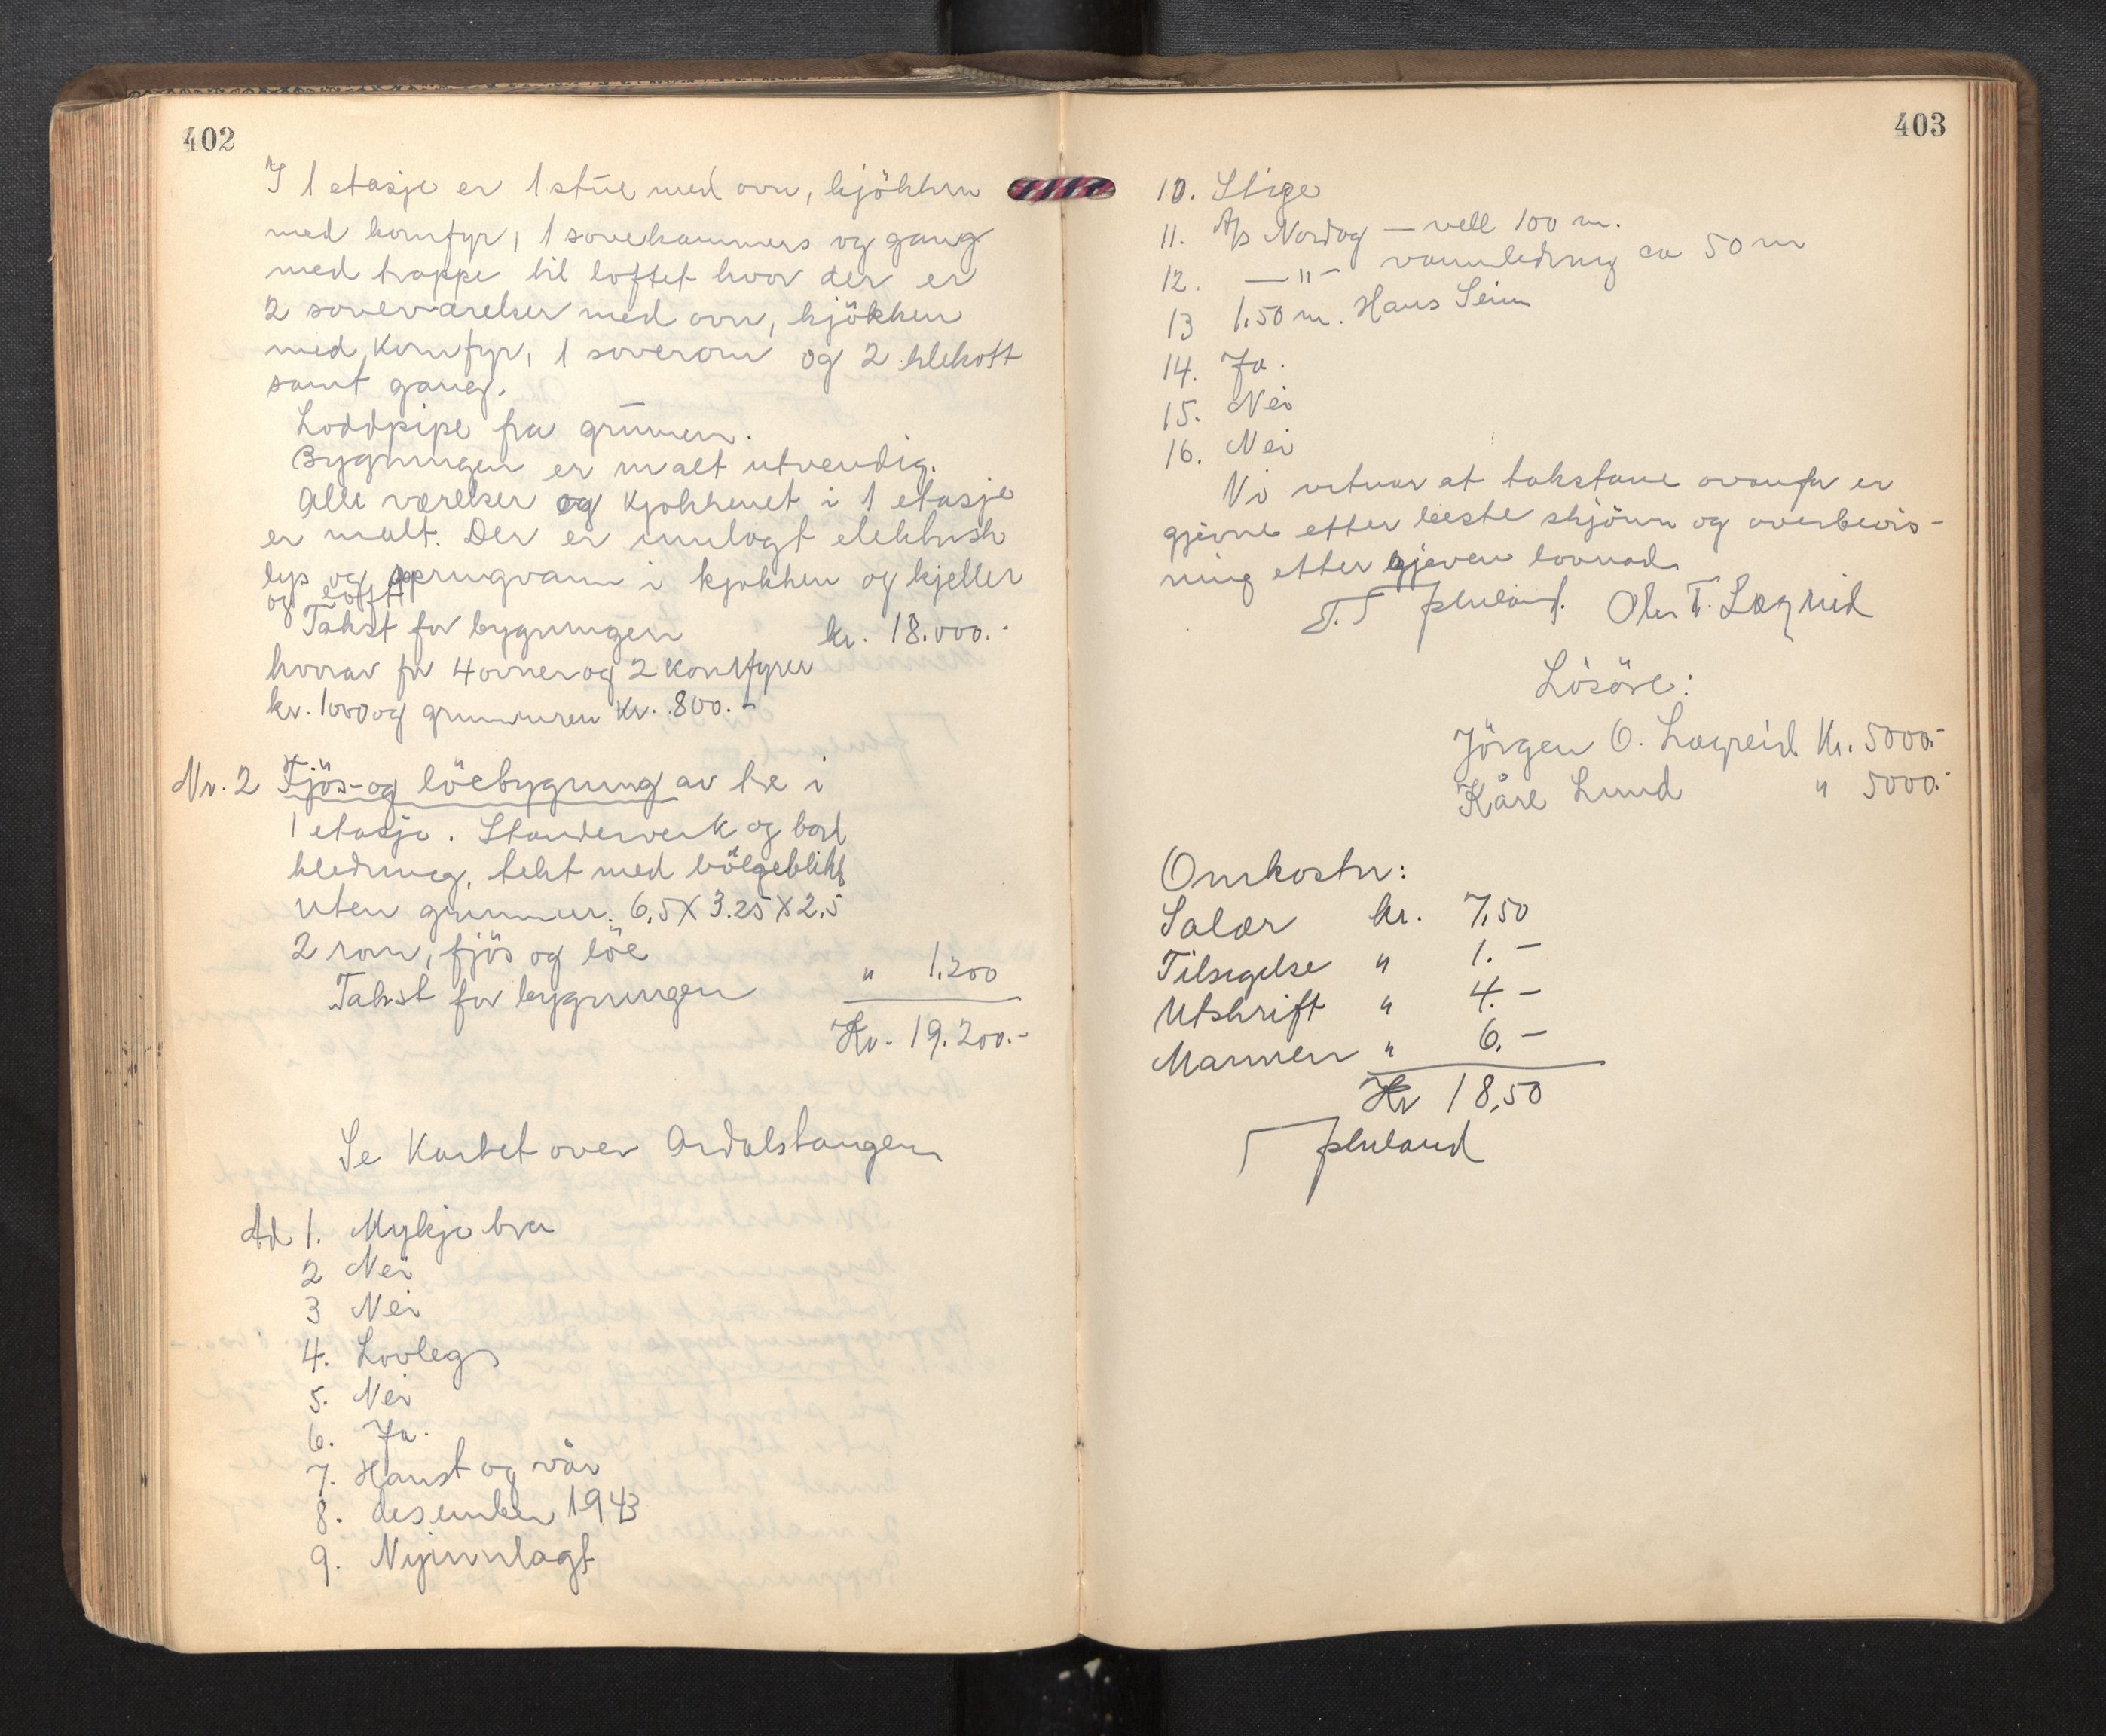 402
I 1 etasje er 1 stue med ovn, kjökken
med komfyr, 1 sovekammers og gang
med trappe til loftet hvor der er
2 soveværelser med ovn, kjökken
med komfyr, 1 soverom og 2 klekott
samt gang.
Loddpipe fra grunnen.
Bygningen er malt utvendig.
Alle værelser og kjøkkenet i 1 etasje
er malt. Der er innlagt elektrisk
lys og springvann i kjøkken og kjeller
og loft
Takst for bygningen kr. 18.000.-
hvorav for 4 ovner og 2 komfyrer
kr. 1000 og grunnmuren kr. 800.-
Nr. 2 Fjös- og löebygning av tre i
1 etasje. Standerverk og bord
kledning, tekt med bölgeblikk
uten grunnmur. 6,5 X 3.25 X 2,5
2 rom, fjös og löe
Takst for bygningen " 1.200
Kr. 19.200.-
Se Kartet over Årdalstangen
Ad 1. Mykje bra
2 Nei
3 Nei
4. Lovleg
5. Nei
6. Ja.
7. Haust og vår
8. desember 1943
9. Nyinnlagt
403
10. Stige
11. A/s Nordag — vell 100 m.
12. —"— vannledning ca 50 m
13 1,50 m. Hans Seim
14. Ja.
15. Nei
16. Nei
Vi vitnar at takstane ovanfor er
gjevne etter beste skjönn og overbevis-
ning etter gjeven lovnad.
Ole T. Lægreid
Lösöre:
Jörgen O. Lægreid Kr. 5000.-
Kåre Lund " 5000.-
Omkostn:
Salær kr. 7,50
Tilsigelse " 1.—
Utskrift " 4.—
Mannen " 6.—
Kr 18,50